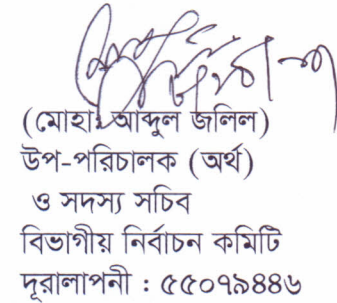 (মোহাঃ আব্দুল জলিল)
উপ-পরিচালক (অর্থ)
ও সদস্য সচিব
বিভাগীয় নির্বাচন কমিটি
দূরালাপনী : ৫৫০৭৯৪৪৬